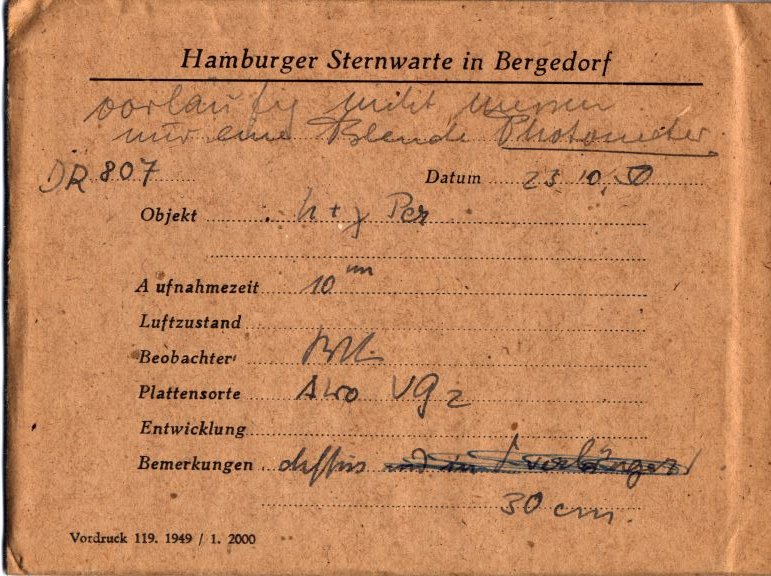 Hamburger Sternwarte in Bergedorf
vorläufig nicht messen
nur eine Blende Photometer
DR 807 Datum 23 10. 50
Objekt h + χ Per
Aufnahmezeit 10 m
Luftzustand
Beobachter
Plattensorte VG 2
Entwicklung
Bemerkungen diffus
30 cm.
Vordruck 119. 1949 / 1. 2000